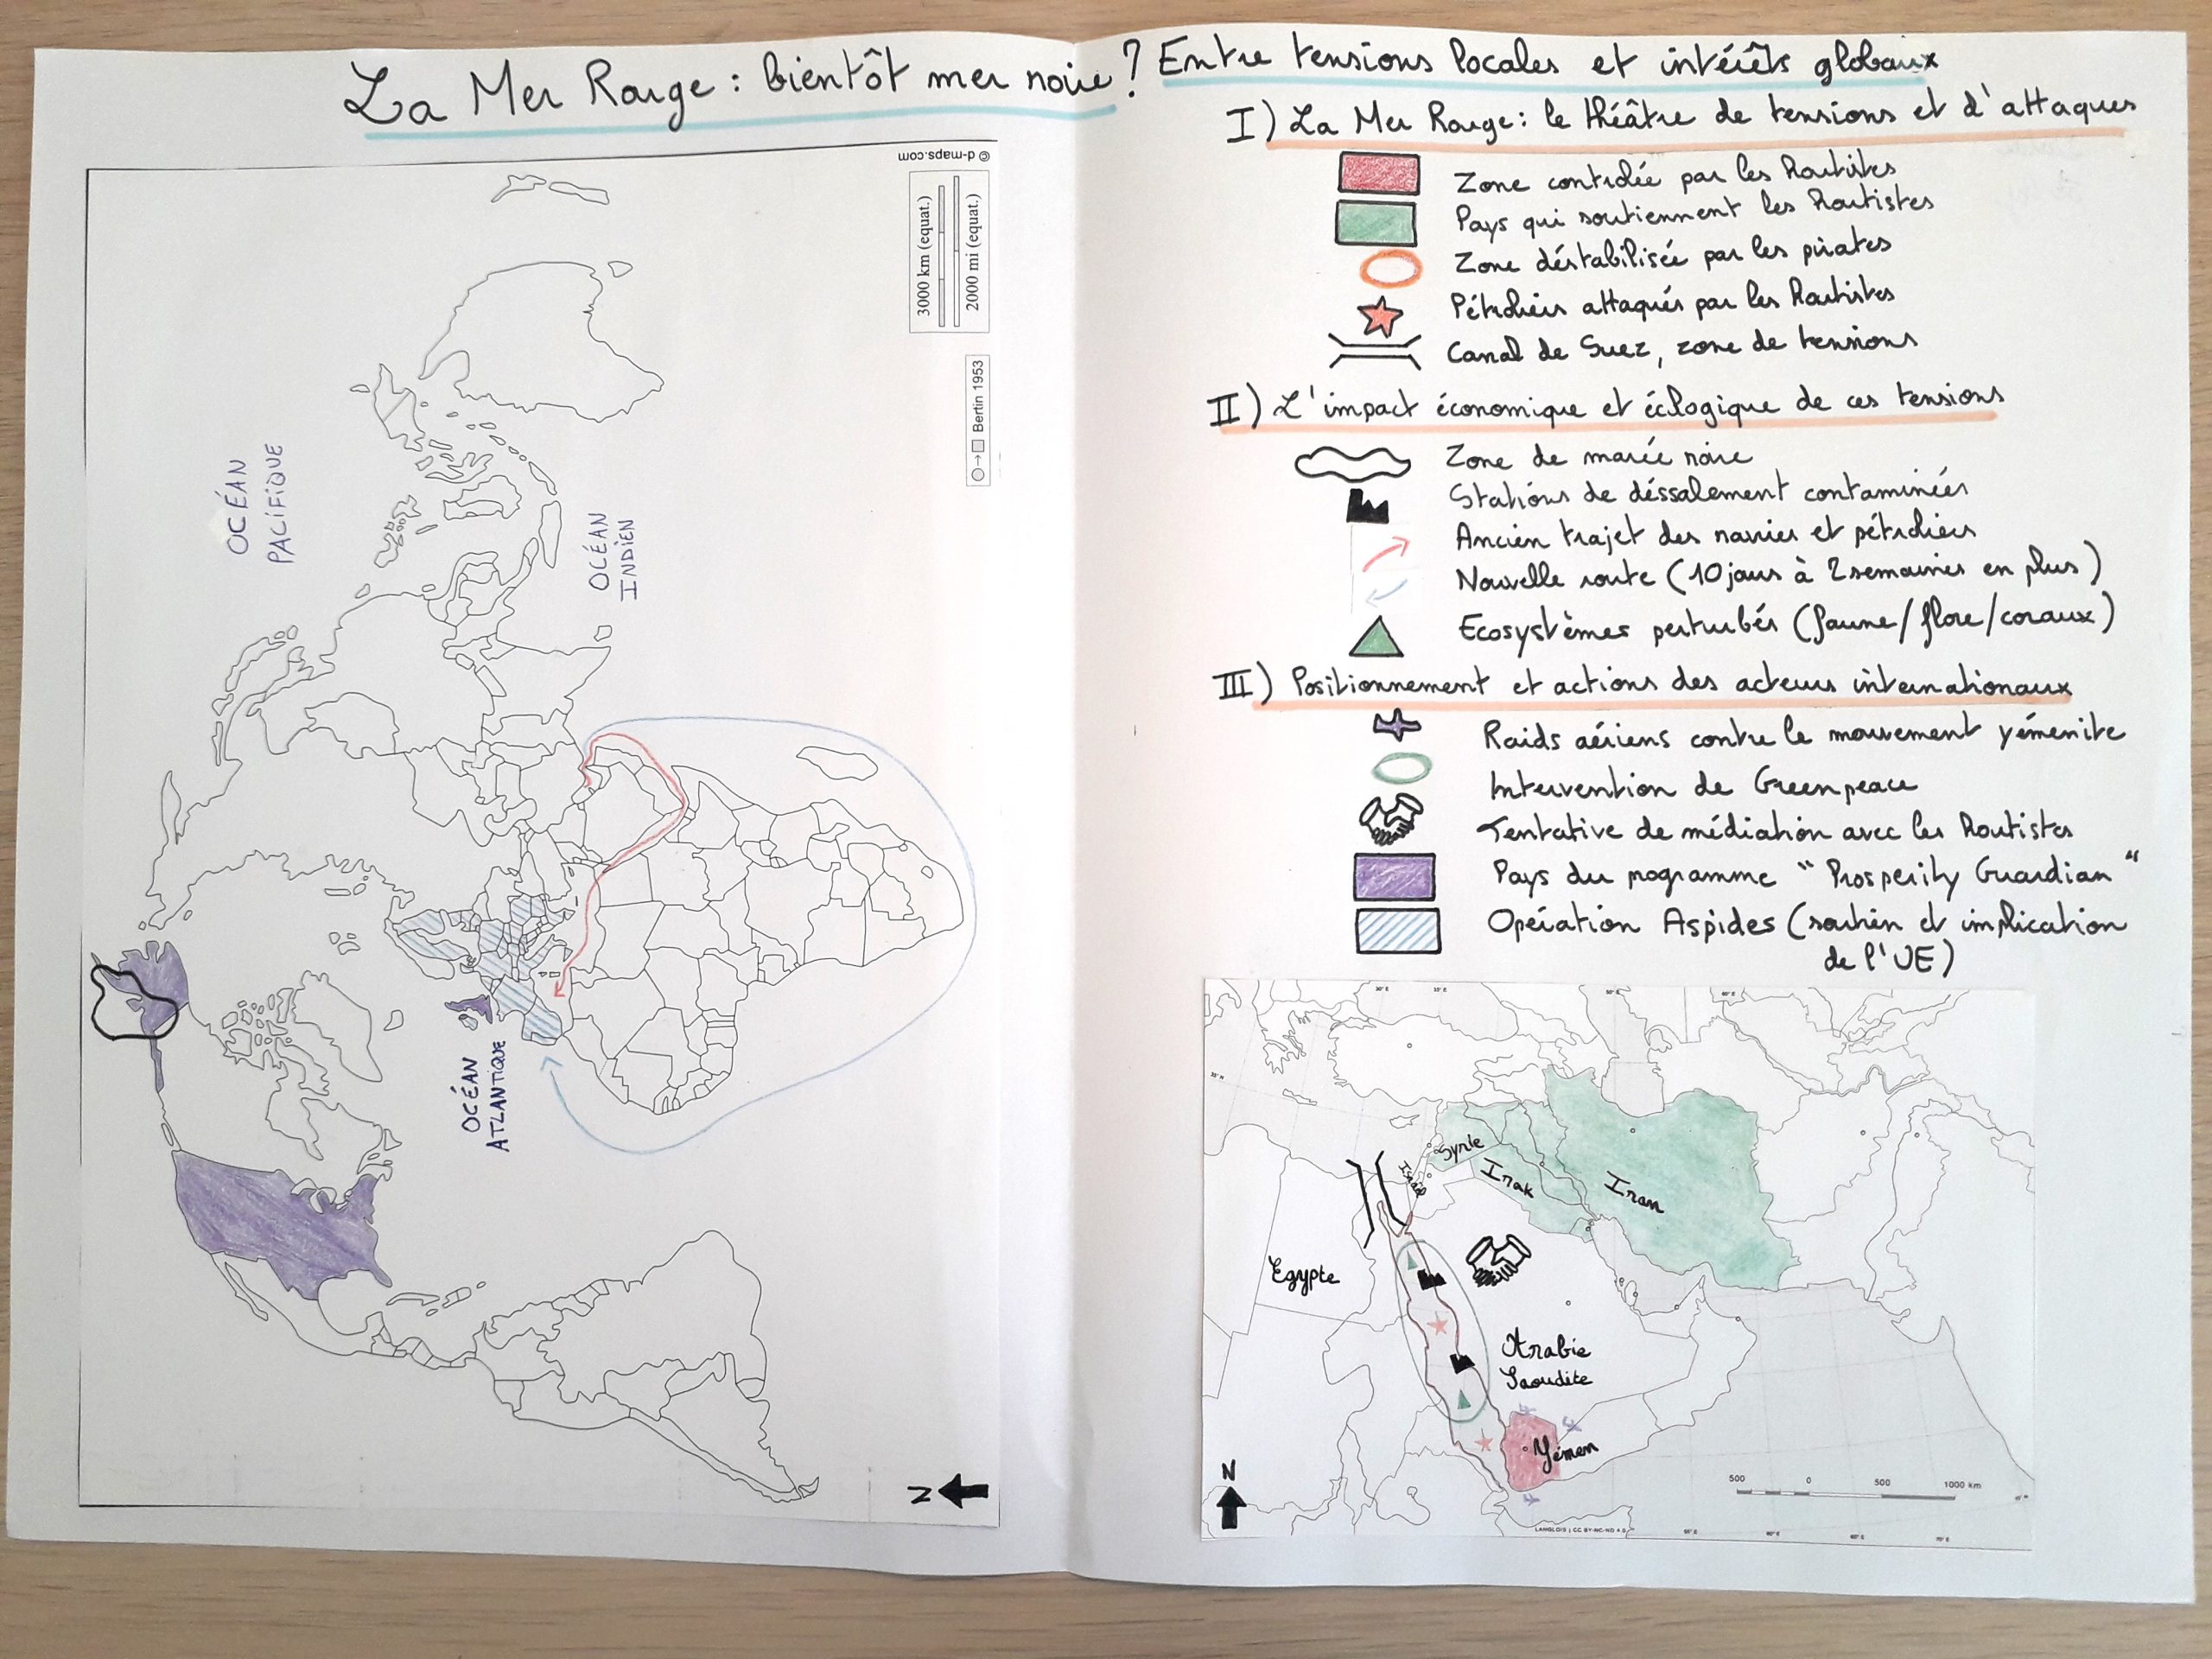 La Mer Rouge : bientôt mer noire ? Entre tensions locales et intérêts globaux
© d-maps.com
3000 km (equat.)
2000 mi (equat.)
Bertin 1953
OCÉAN
PACIFIQUE
OCÉAN
INDIEN
OCÉAN
ATLANTIQUE
N
I) La Mer Rouge : le théâtre de tensions et d'attaques
Zone contrôlée par les Houtistes
Pays qui soutiennent les Houtistes
Zone déstabilisée par les pirates
Pétroliers attaqués par les Houtistes
Canal de Suez, zone de tensions
II) L'impact économique et écologique de ces tensions
Zone de marée noire
Stations de déssalement contaminées
Ancien trajet des navires et pétroliers
Nouvelle route (10 jours à 2 semaines en plus)
Ecosystèmes perturbés (faune/flore/coraux)
III) Positionnement et actions des acteurs internationaux
Raids aériens contre le mouvement yéménite
Intervention de Greenpeace
Tentative de médiation avec les Houtistes
Pays du programme "Prosperity Guardian"
Opération Aspides (soutien et implication
de l'UE)
Syrie
Israël
Irak
Iran
Egypte
Arabie
Saoudite
Yémen
N
500 0 500 1000 km
LANGLOIS | CC BY-NC-ND 4.0